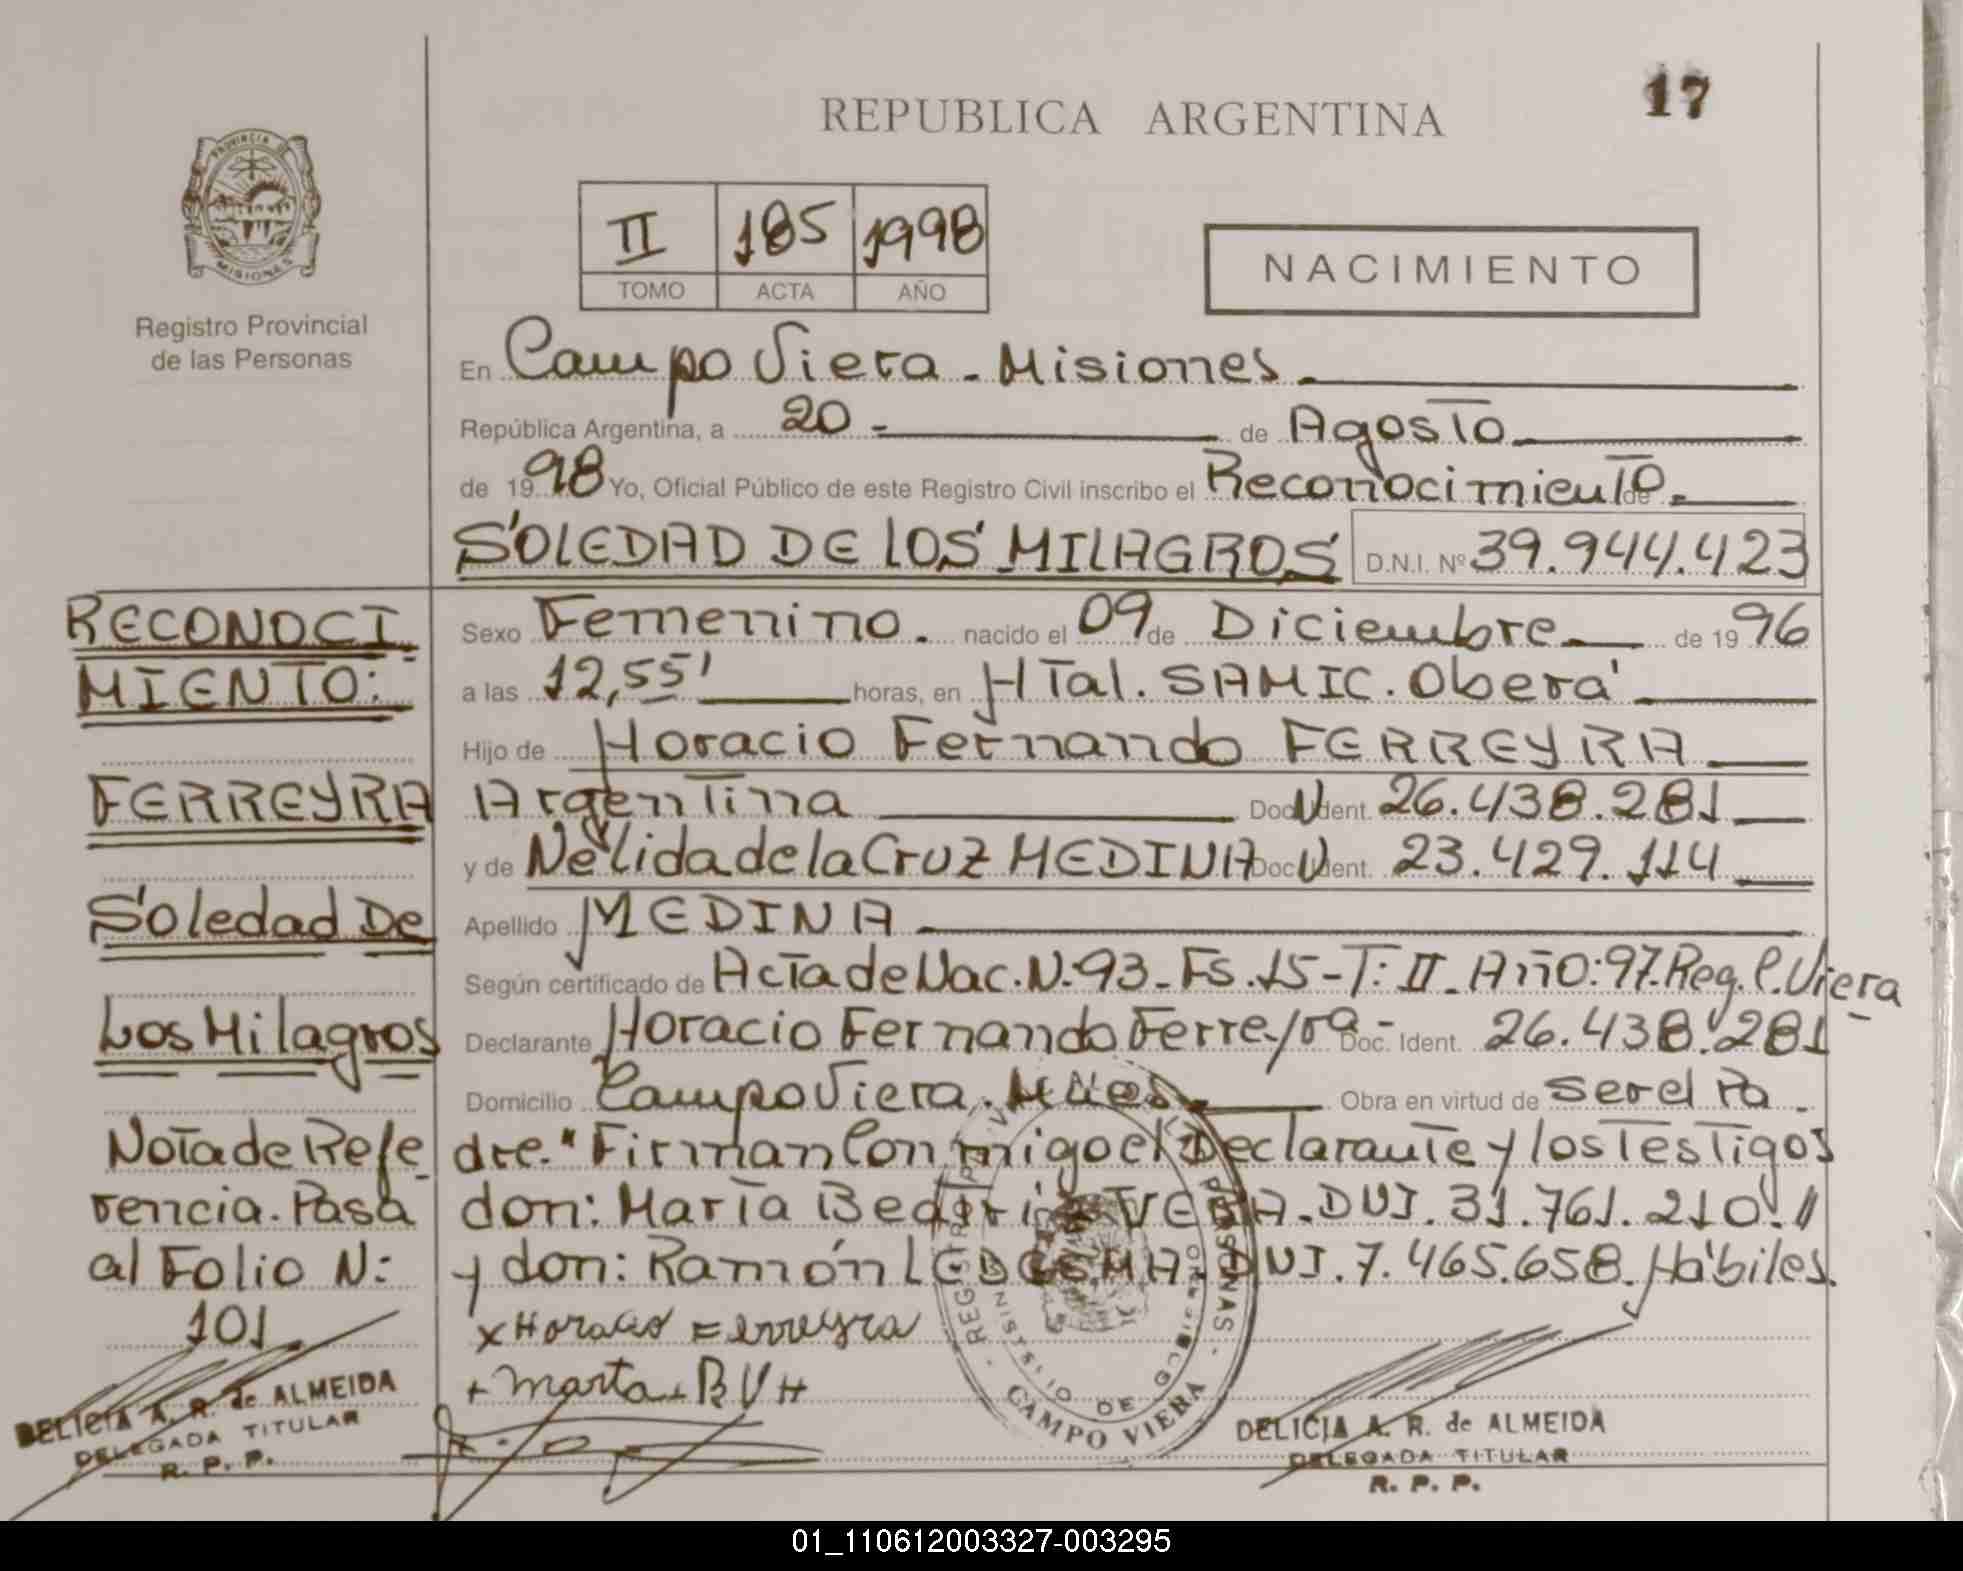 17
REPUBLICA ARGENTINA
PROVINCIA DE
MISIONES
Registro Provincial
de las Personas
II 185 1998
TOMO ACTA AÑO
NACIMIENTO
En Campo Viera - Misiones.
República Argentina, a 20 - de Agosto
de 1998 Yo, Oficial Público de este Registro Civil inscribo el Reconocimiento de
SOLEDAD DE LOS MILAGROS D.N.I. Nº 39.944.423
Sexo Femenino. nacido el 09 de Diciembre de 1996
a las 12,55' horas, en HTal. SAMIC. Oberá
Hijo de Horacio Fernando FERREYRA
Argentina Doc. Ident. N 26.438.281
y de Nélida de la Cruz MEDINA Doc. Ident. N 23.429.114
Apellido MEDINA
Según certificado de Acta de Nac. N:93-Fs.15-T:II-Año:97.Reg.C.Viera
Declarante Horacio Fernando Ferreyra- Doc. Ident. 26.438.281
Domicilio Campo Viera. Mnes. Obra en virtud de ser el Pa
dre." Firman Conmigo el Declarante y los Testigos
don: María Beatriz VERA-DNI.31.761.210.//
y don: Ramón LEDESMA-DNI.7.465.658.Hábiles.
x Horacio Ferreyra
DELICIA A. R. de ALMEIDA
DELEGADA TITULAR
R. P. P.
CAMPO VIERA
RECONOCI
MIENTO:
FERREYRA
Soledad De
Los Milagros
Nota de Refe-
rencia. Pasa
al Folio N:
101
DELICIA A. R. de ALMEIDA
DELEGADA TITULAR
R. P. P.
01_110612003327-003295